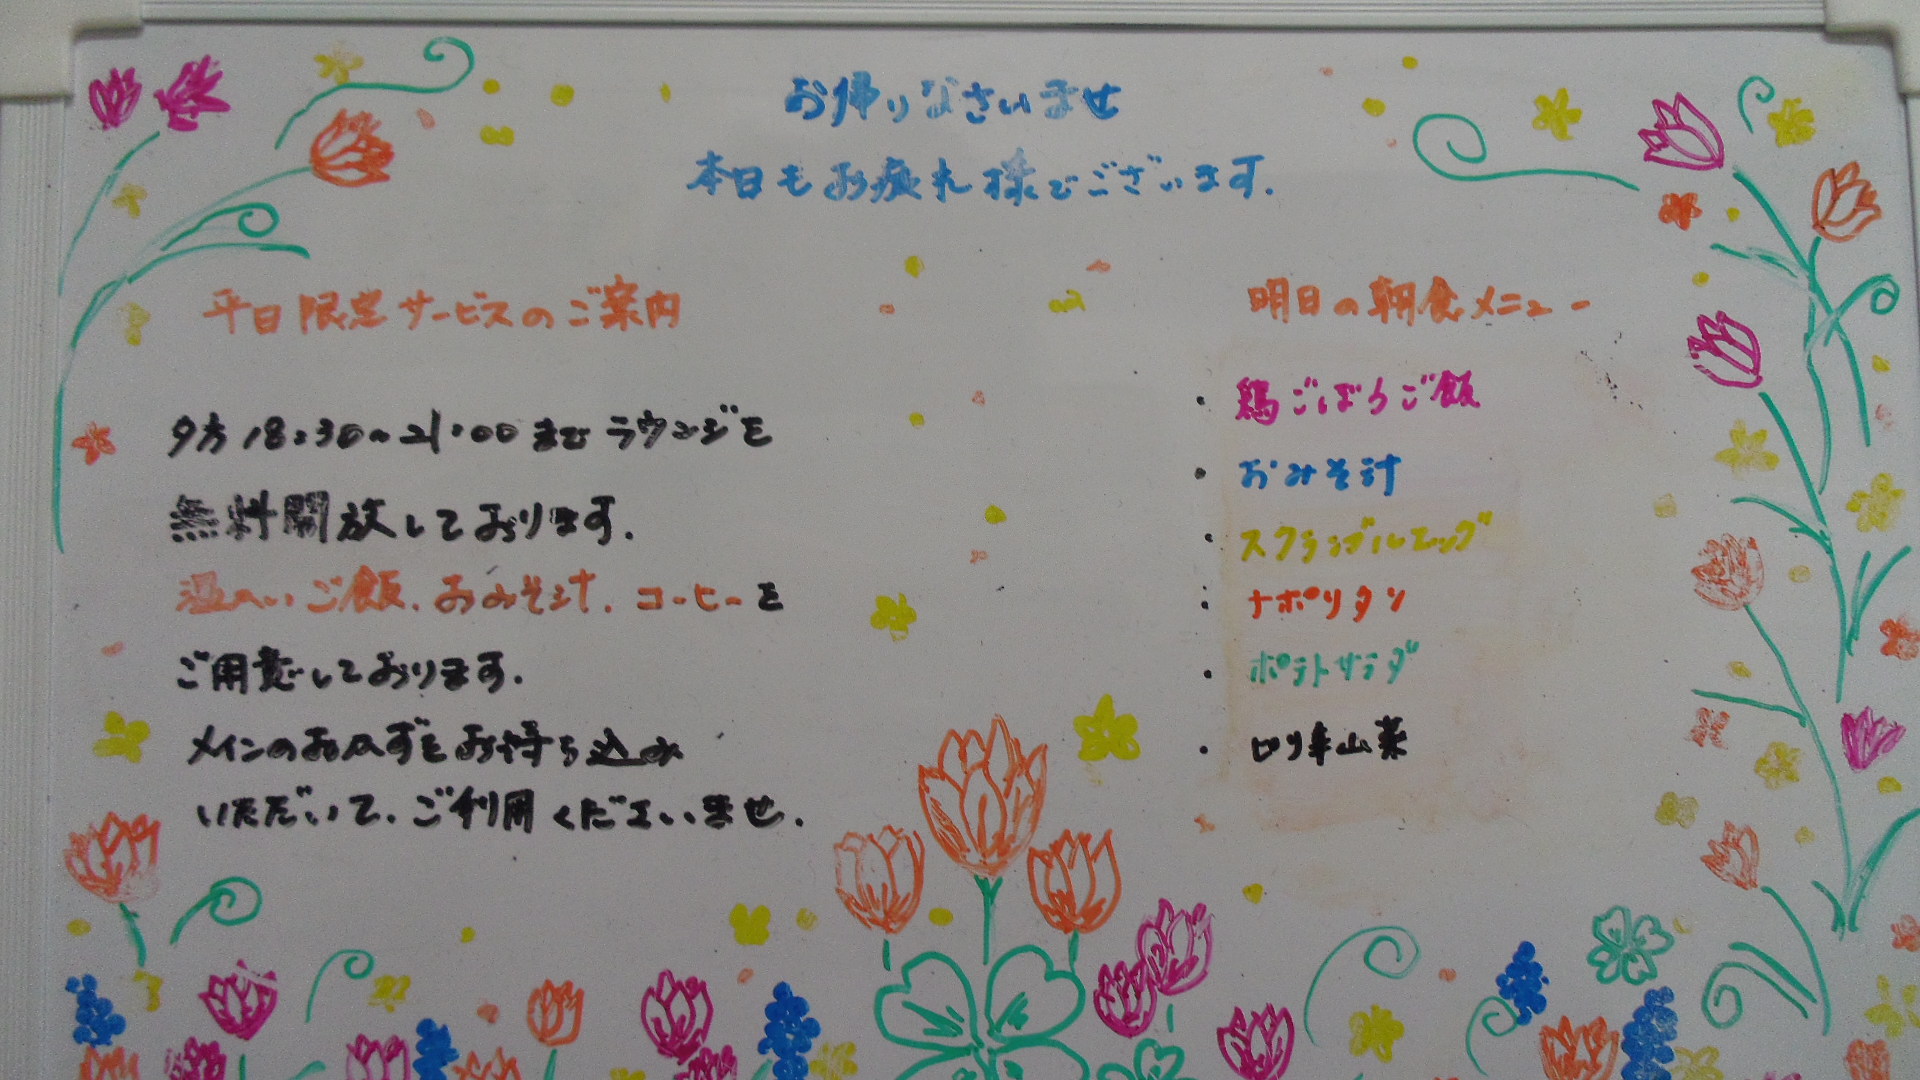 お帰りなさいませ
本日もお疲れ様でございます.
平日限定サービスのご案内
夕方18:30~21:00までラウンジを
無料開放しております.
温かいご飯.おみそ汁.コーヒーを
ご用意しております.
メインのおかずをお持ち込み
いただいて.ご利用くださいませ.
明日の朝食メニュー
・鶏ごぼうご飯
・おみそ汁
・スクランブルエッグ
・ナポリタン
・ポテトサラダ
・切り干山菜